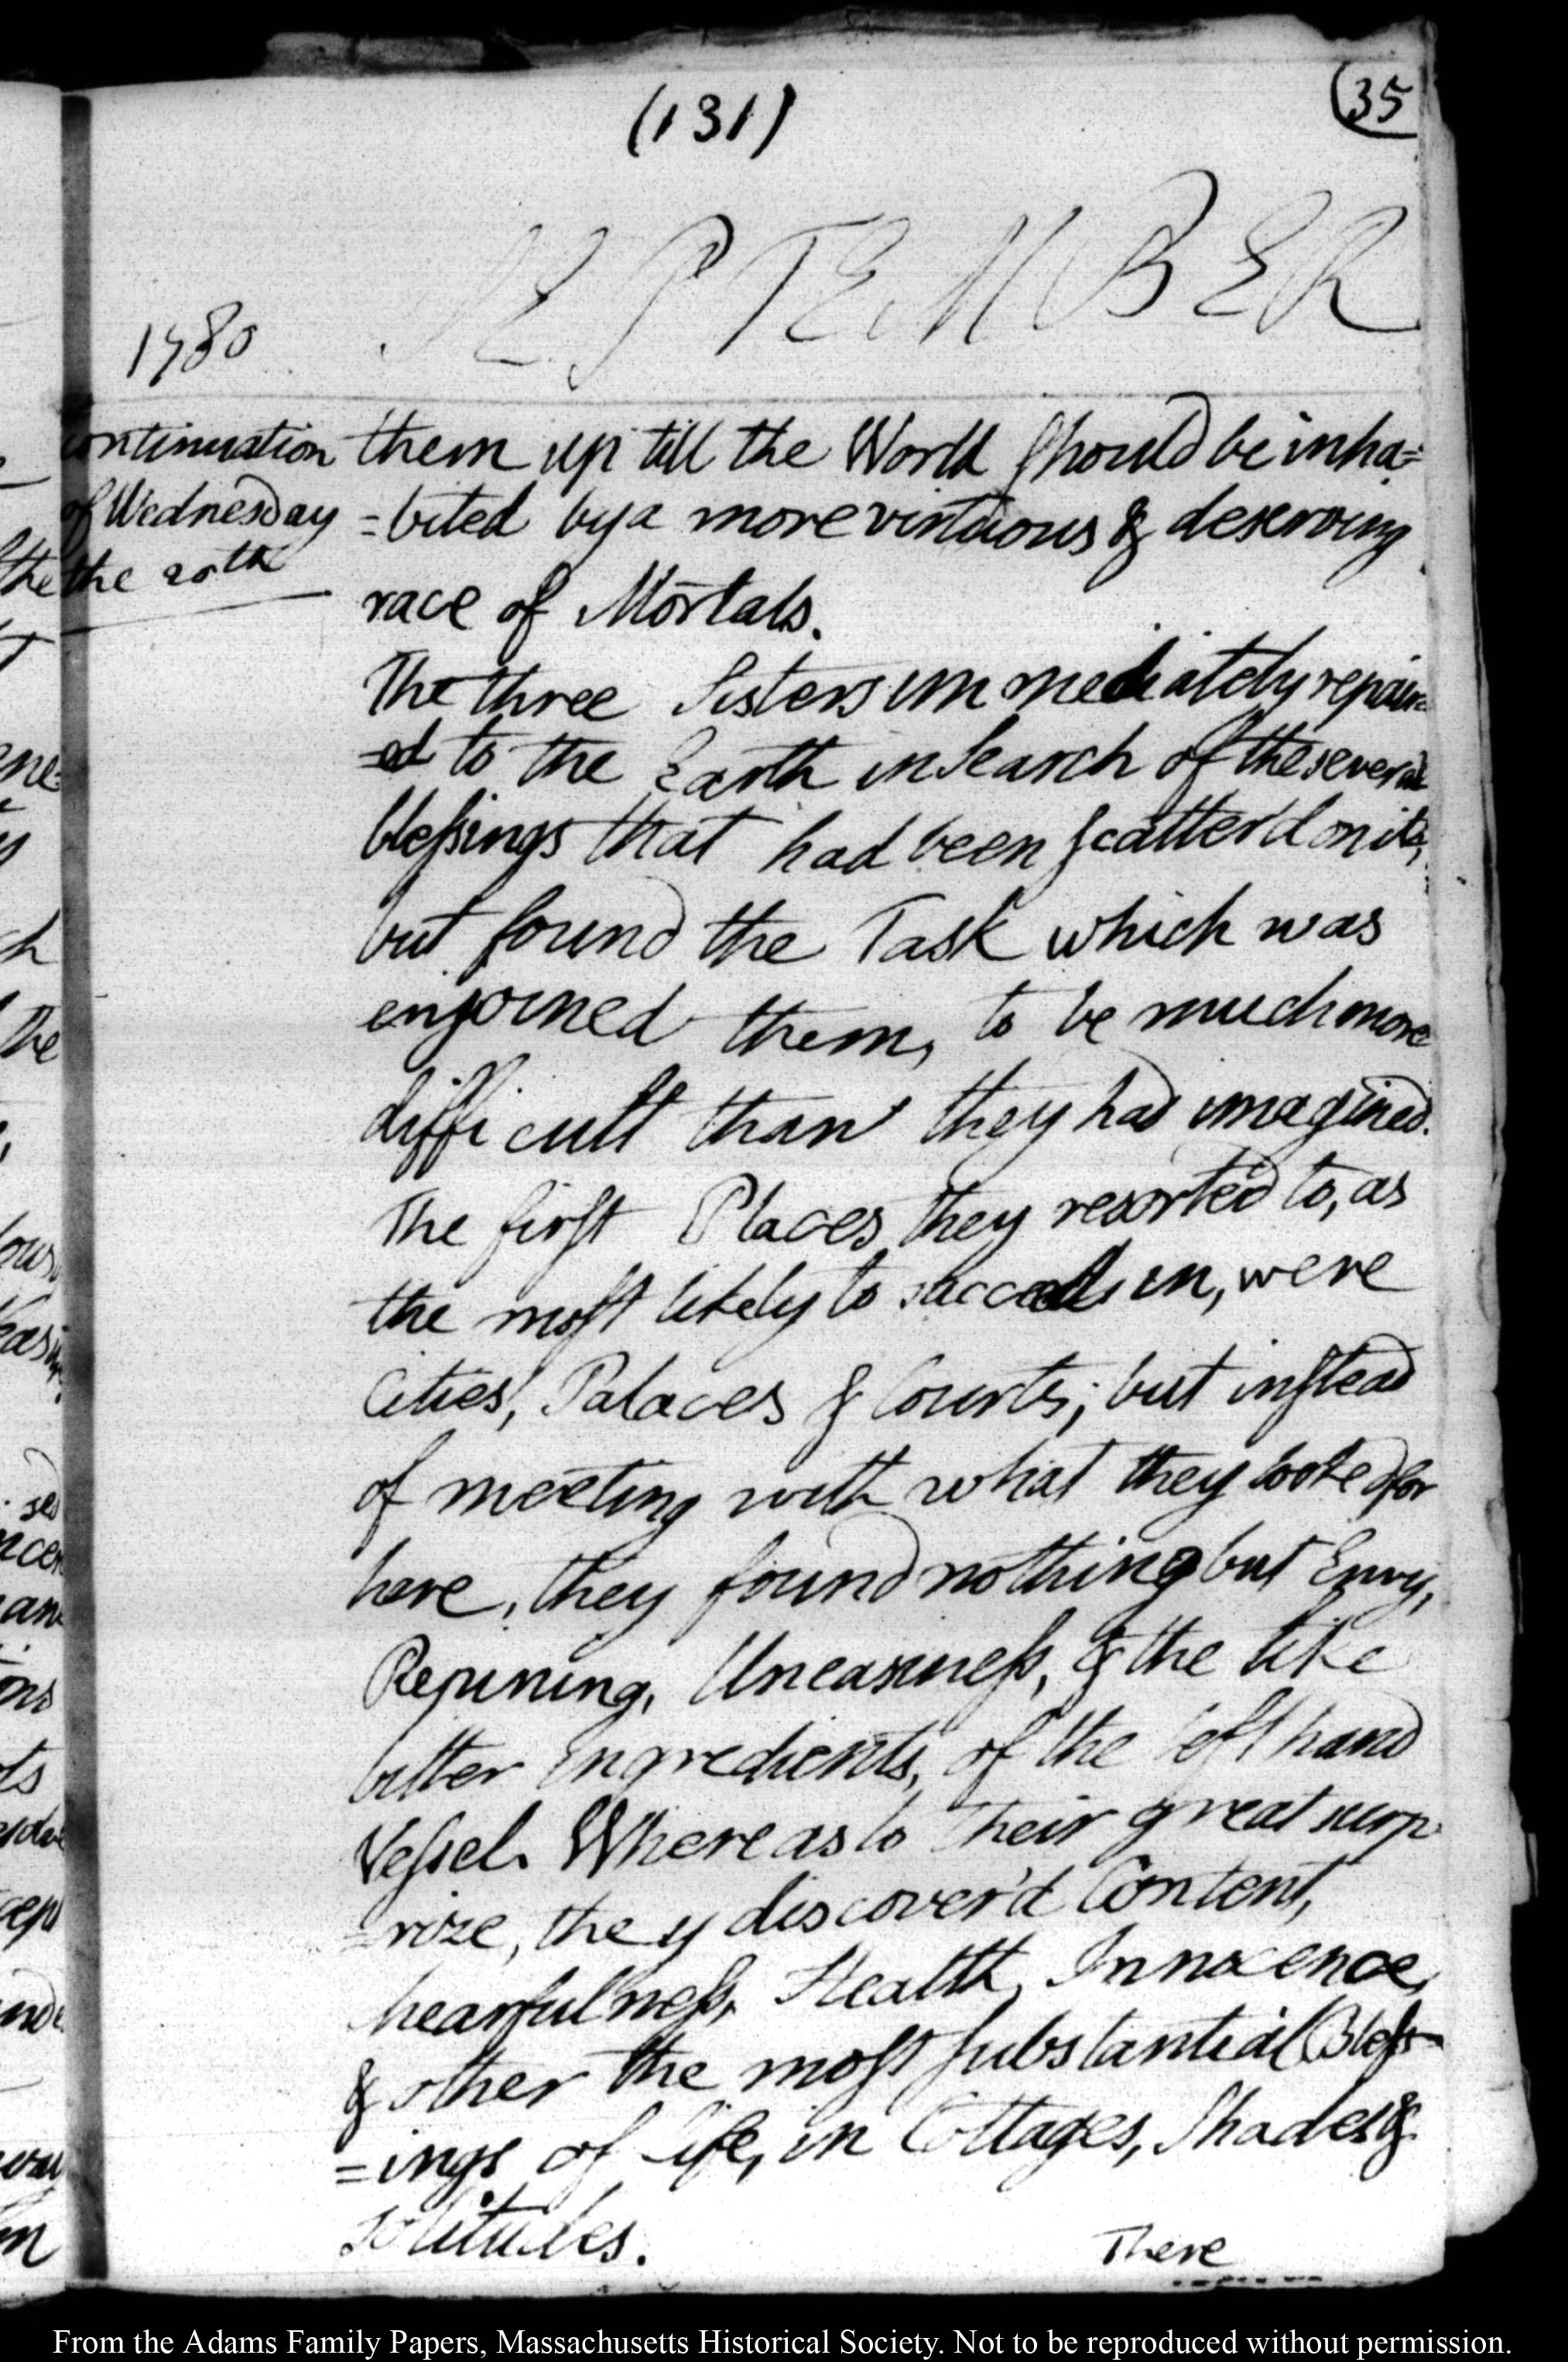 (131)
35
SEPTEMBER
1780
continuation
of Wednesday
the 20th
them up till the World should be inha=
=bited by a more virtuous & deserving
race of Mortals.
The three Sisters immediately repair=
=ed to the Earth in Search of the several
blessings that had been scatter'd on it,
but found the Task which was
enjoined them, to be much more
difficult than they had imagined.
The first Places they resorted to, as
the most likely to succeed in, were
Cities, Palaces & Courts; but instead
of meeting with what they looked for
here, they found nothing but Envy,
Repining, Uneasiness, & the like
bitter Ingredients, of the left hand
Vessel. Whereas to their great surp
=rize, they discover'd Content,
hearfulness, Health, Innocence,
& other the most substantial Bless-
=ings of Life, in Cottages, Shades &
solitudes.
There
From the Adams Family Papers, Massachusetts Historical Society. Not to be reproduced without permission.